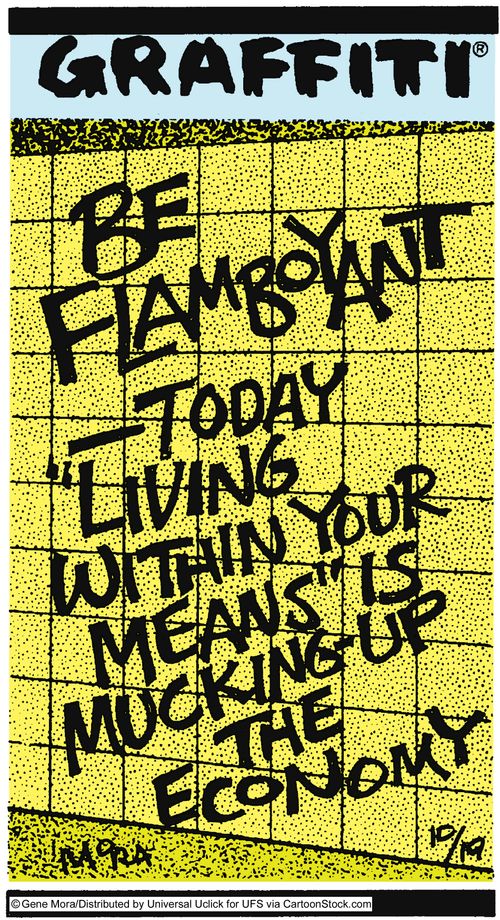 GRAFFITI®
BE
FLAMBOYANT
—TODAY
"LIVING
WITHIN YOUR
MEANS" IS
MUCKING-UP
THE
ECONOMY
MORA
10/19
© Gene Mora/Distributed by Universal Uclick for UFS via CartoonStock.com